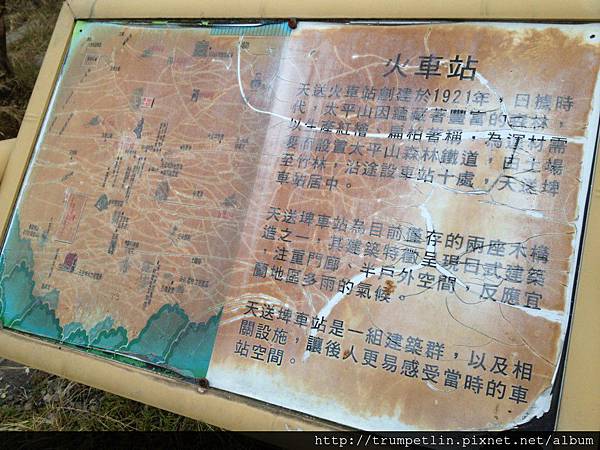 火車站
天送火車站創建於1921年，日據時
代，太平山因蘊藏著豐富的森林，
以生產紅檜、扁柏著稱，為運材需
要而設置太平山森林鐵道，由土場
至竹林，沿途設車站十處，天送埤
車站居中。
天送埤車站為目前僅存的兩座木構
造之一，其建築特徵呈現日式建築
，注重門廊、半戶外空間，反應宜
蘭地區多雨的氣候。
天送埤車站是一組建築群，以及相
關設施，讓後人更易感受當時的車
站空間。
http://trumpetlin.pixnet.net/album